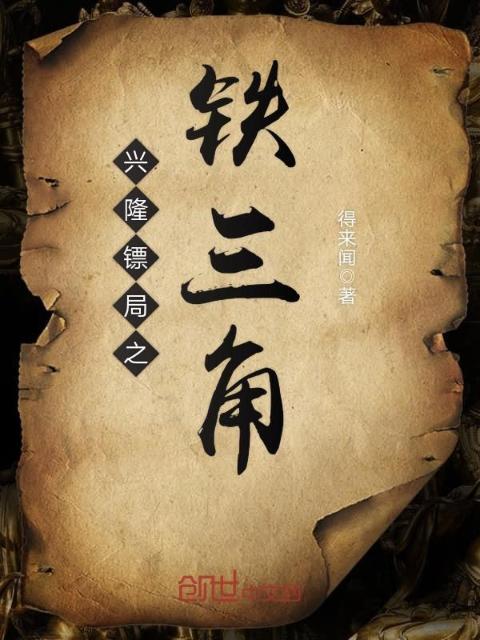 兴隆镖局之
铁三角
得来闻◎著
创世中文网